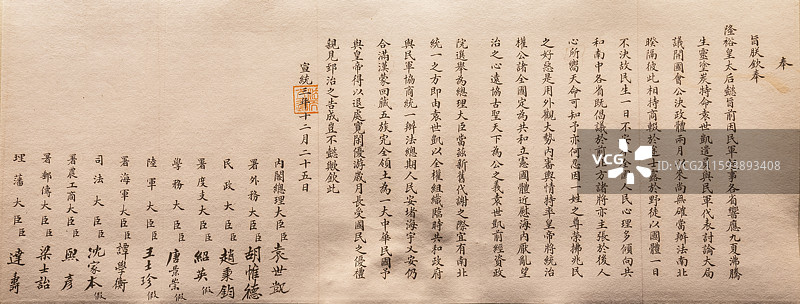 奉
旨朕欽奉
隆裕皇太后懿旨前因民軍起事各省響應九夏沸騰
生靈塗炭特命袁世凱遣員與民軍代表討論大局
議開國會公決政體兩月以來尚無確當辦法南北
暌隔彼此相持商輟於塗士露於野徒以國體一日
不決故民生一日不安今全國人民心理多傾向共
和南中各省既倡議於前北方諸將亦主張於後人
心所嚮天命可知予亦何忍因一姓之尊榮拂兆民
之好惡是用外觀大勢內審輿情特率皇帝將統治
權公諸全國定為共和立憲國體近慰海內厭亂望
治之心遠協古聖天下為公之義袁世凱前經資政
院選舉為總理大臣當茲新舊代謝之際宜有南北
統一之方即由袁世凱以全權組織臨時共和政府
與民軍協商統一辦法總期人民安堵海宇乂安仍
合滿漢蒙回藏五族完全領土為一大中華民國予
與皇帝得以退處寬閒優游歲月長受國民之優禮
親見郅治之告成豈不懿歟欽此
宣統三年十二月二十五日
內閣總理大臣臣袁世凱
署外務大臣臣胡惟德
民政大臣臣趙秉鈞
署度支大臣臣紹英假
學務大臣臣唐景崇假
陸軍大臣臣王士珍假
署海軍大臣臣譚學衡
司法大臣臣沈家本假
署農工商大臣臣熙彥
署郵傳大臣臣梁士詒
理藩大臣臣達壽
VCG
VCG211594893408